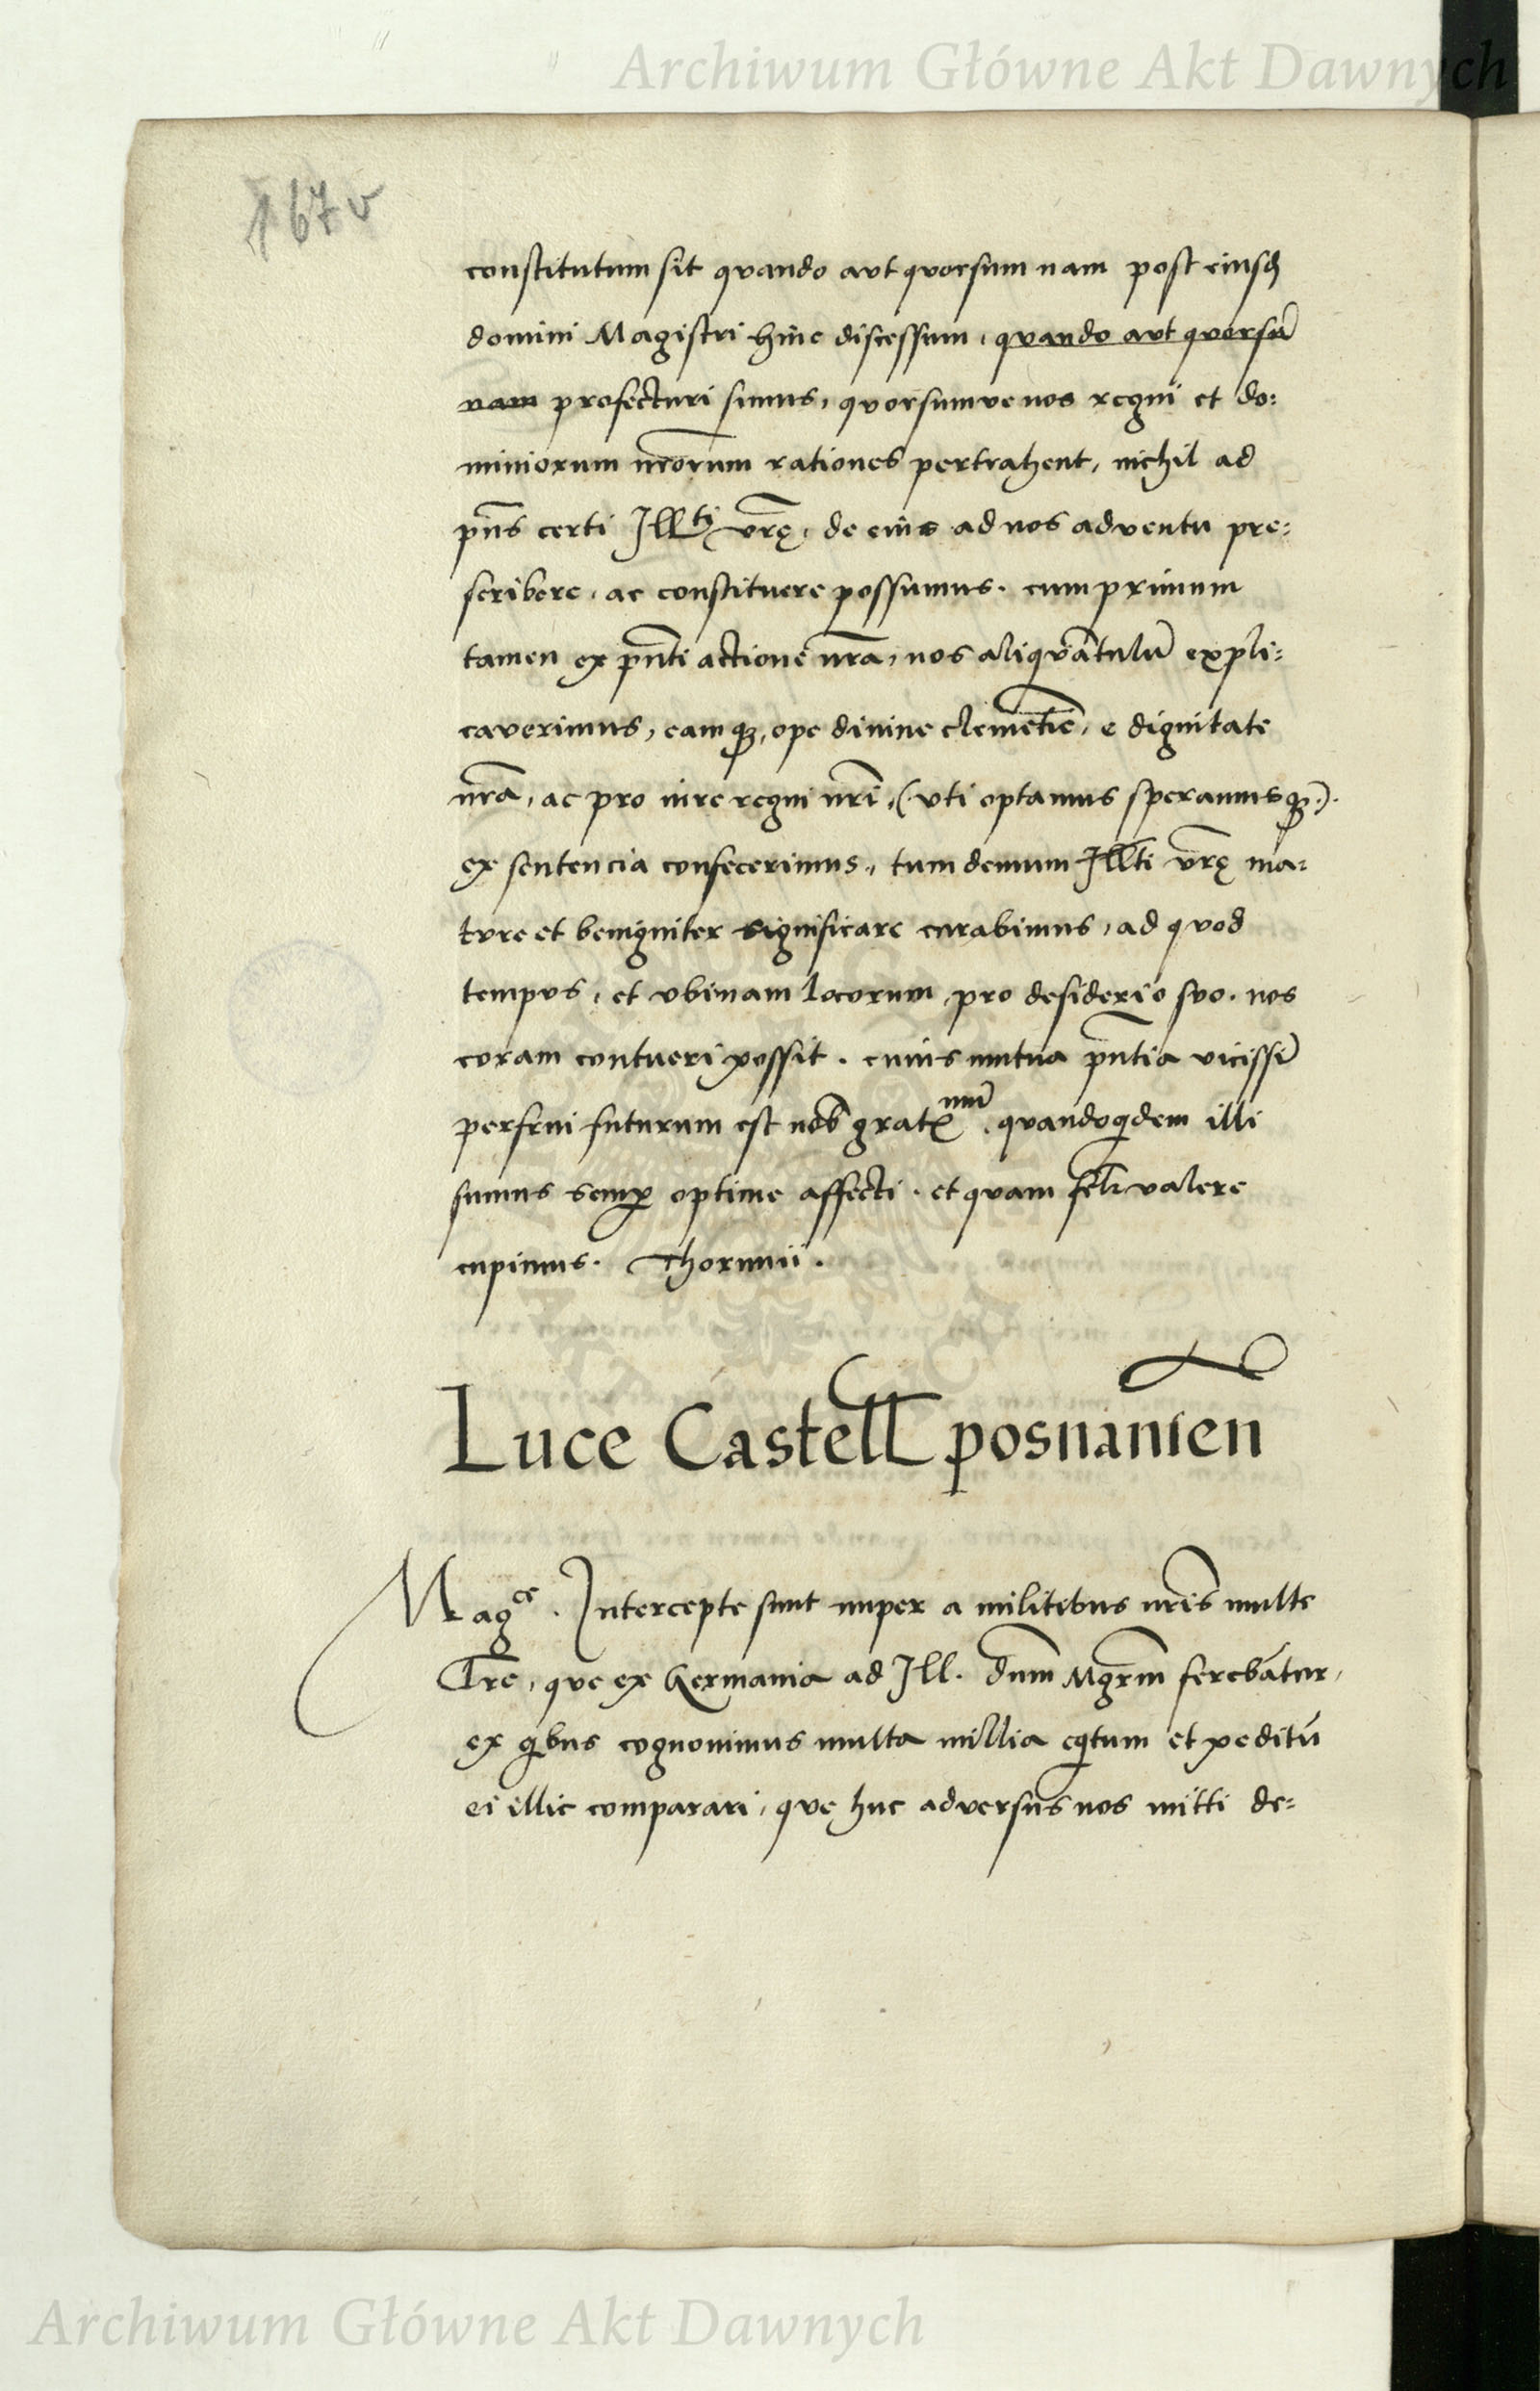 Archiwum Główne Akt Dawnych
167v
constitutum sit quando aut quorsum nam post eiusd
domini Magistri hinc discessum, quando aut quorsū
nam profecturi simus, quorsumve nos regni et do:
miniorum nr̄orum rationes pertrahent, nichil ad
pn̄s certi Ill^ti vr̄ę, de eius ad nos adventu pre:
scribere, ac constituere possumus. cum primum
tamen ex pn̄ti actione nr̄a, nos aliquātulū expli:
caverimus, eamqꝫ, ope divine clemētie, e dignitate
nr̄a, ac pro iure regni nr̄i, (uti optamus speramusqꝫ.).
ex sentencia confecerimus, tum demum Ill̄ti vr̄ę ma:
ture et benigniter significare curabimus, ad quod
tempus, et ubinam locorum, pro desiderio suo. nos
coram contueri possit. cuius mutua pn̄tia vicissī
perfrui futurum est nob̄ gratꝫ^mū, quandoqidem illi
sumus semꝑ optime affecti. et quam fel̄r valere
cupimus. Thorunii.
Luce Castell posnanien̄
Mag^ce. Intercepte sunt nuper a militibus nr̄is multe
Lr̄e, que ex Germania ad Ill. dn̄m Mgr̄m ferebātur,
ex qibus cognovimus multa millia eqitum et peditū
ei illic comparari, que huc adversus nos mitti de:
Archiwum Główne Akt Dawnych